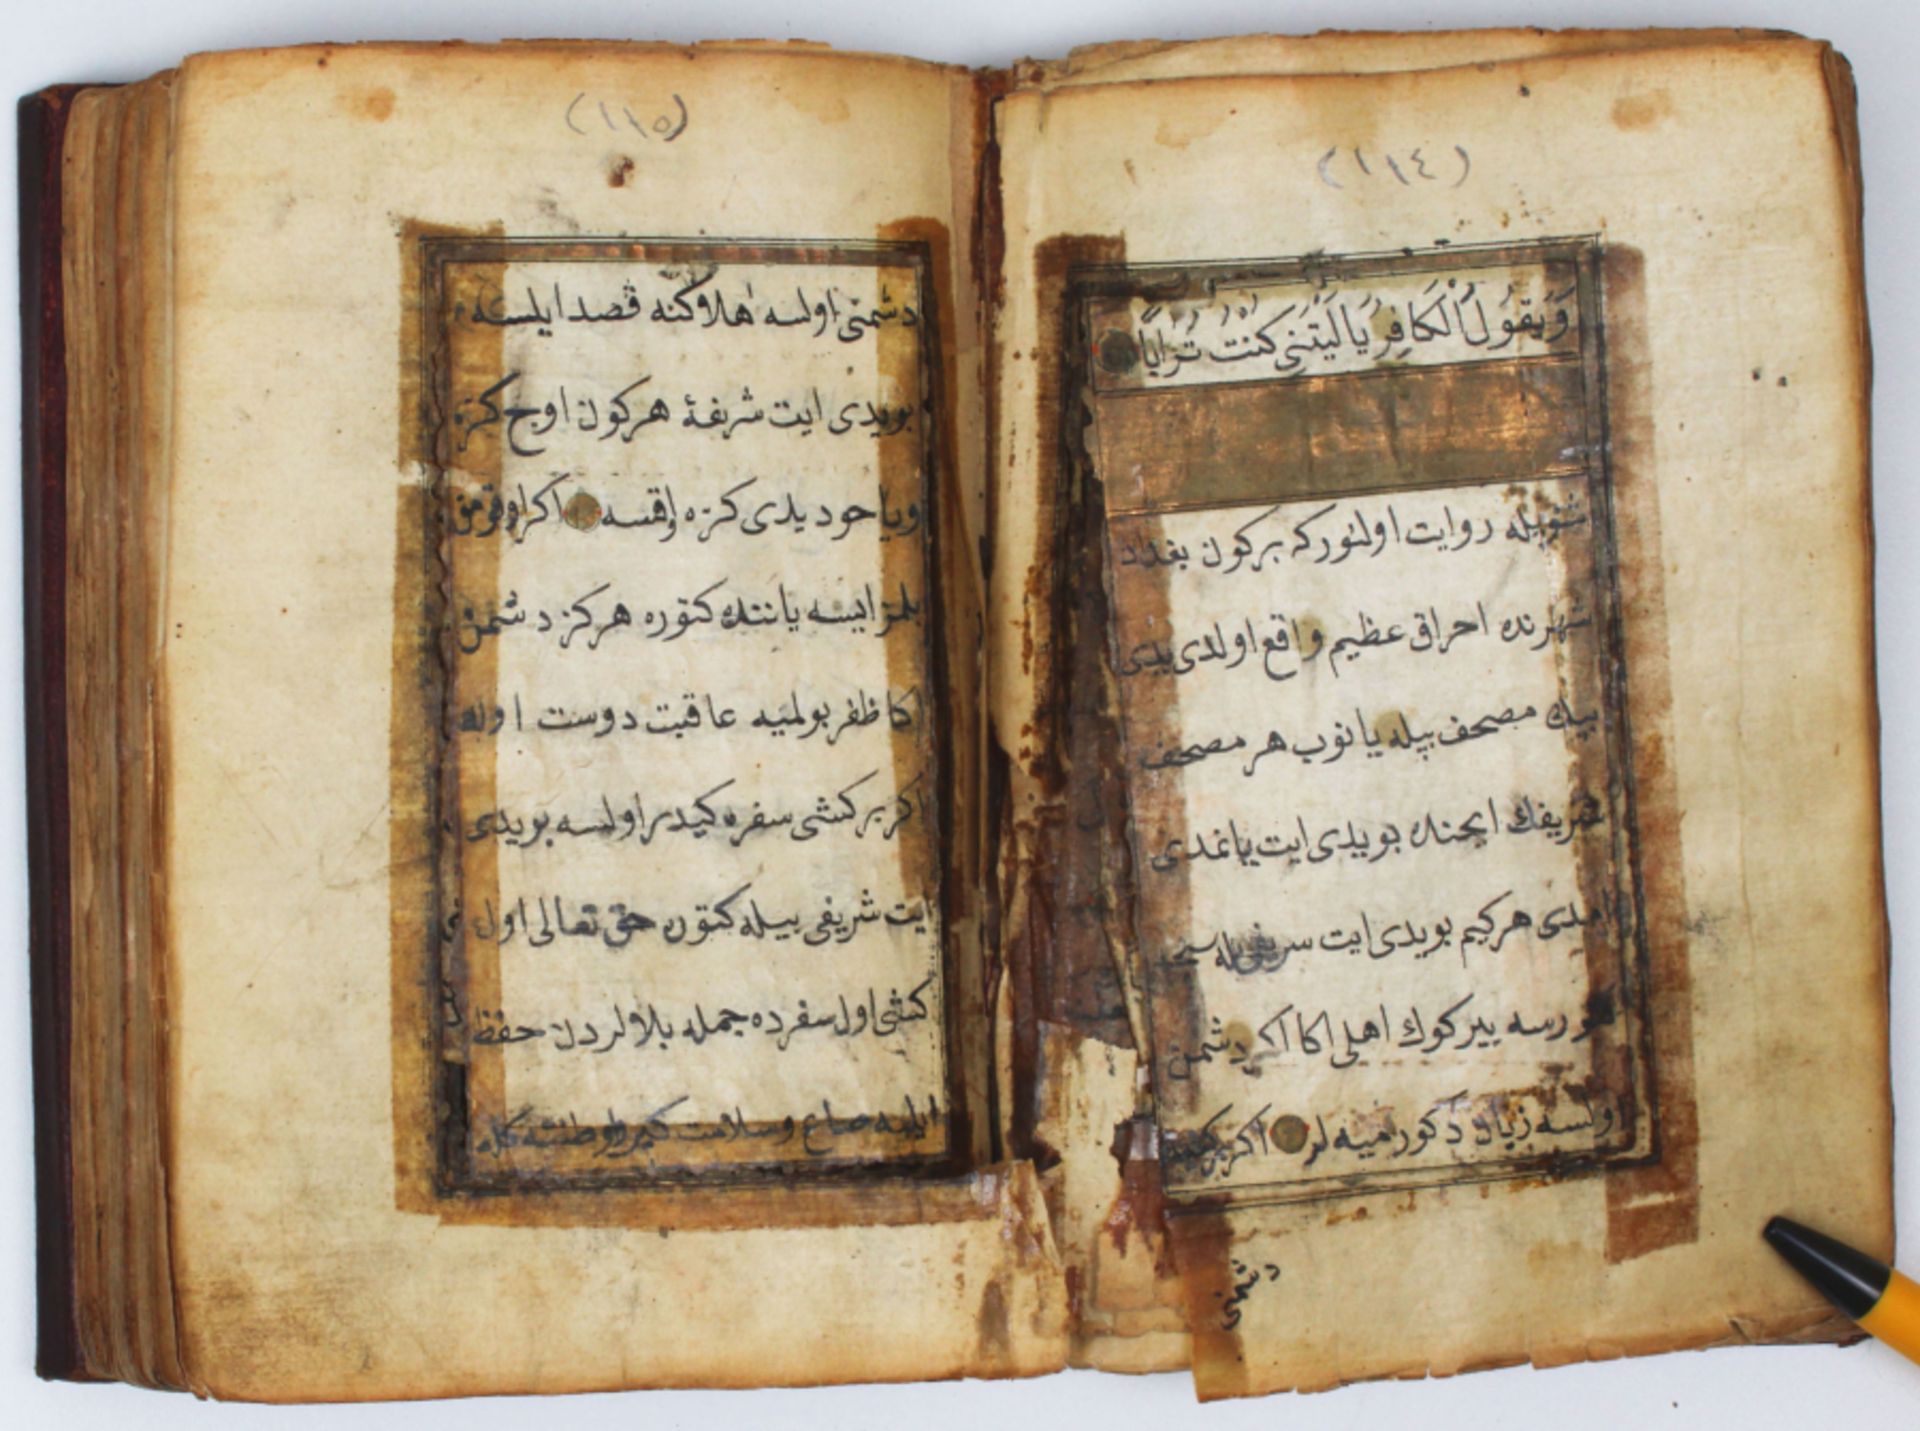 (١١٤)
وَيَقُولُ الْكَافِرُ يَا لَيْتَنِي كُنْتُ تُرَابًا
شويله روايت اولنوركه بركون بغداد
شهرنده احراق عظيم واقع اولدى يدى
بيك مصحف بيله يانوب هر مصحف
شريفك ايچنده بو يدى ايت يانمدى
امدى هركيم بويدى ايت شريفى بيله
كوررسه يير كوك اهلى اكا اكر دشمن
اولسه زيان دكورميه لر اكر بركيمسه
دشمنى
(١١٥)
دشمنى اولسه هلاكنه قصد ايلسه
بويدى ايت شريفهٔ هركون اوچ كزه
وياخود يدى كزه اوقسه اكر اوقومق
بلمز ايسه ياننده كتوره هركز دشمن
اكا ظفر بولميه عاقبت دوست اوله
اكر بر كشى سفره كيدر اولسه بويدى
ايت شريفى بيله كتوره حق تعالى اول
كشى اول سفرده جمله بلالردن حفظ
ايليه صاغ وسلامت كيرو وطننه كله